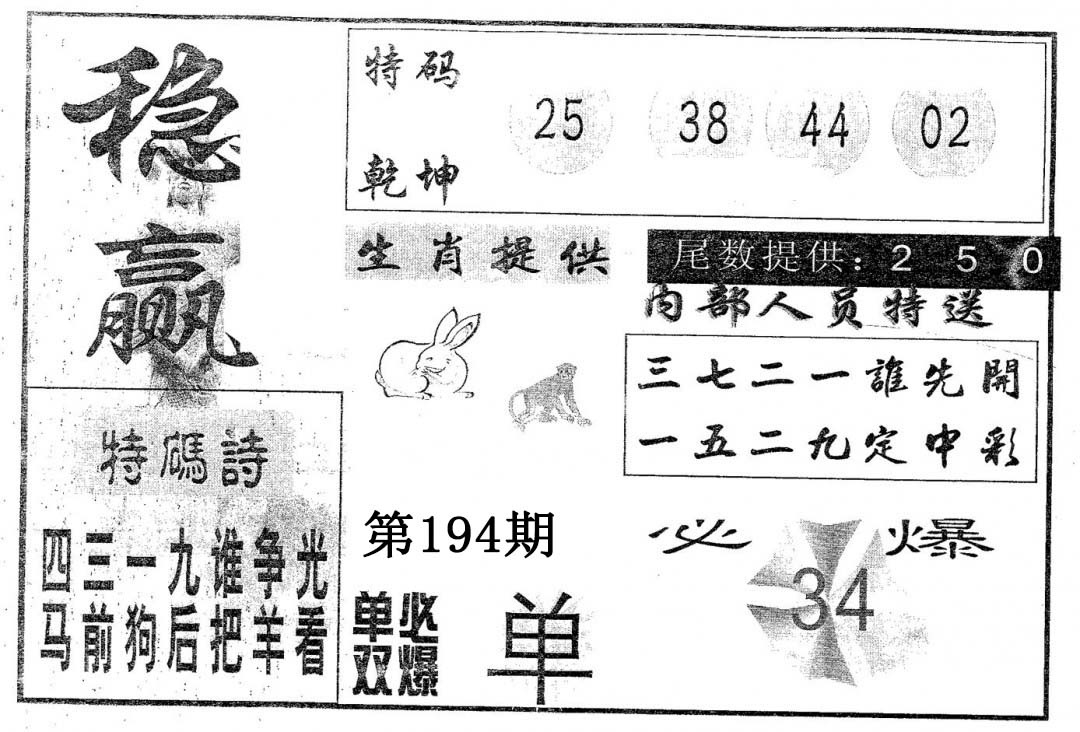 稳赢
特码
乾坤
25 38 44 02
生肖提供
尾数提供：2 5 0
内部人员特送
三七二一誰先開
一五二九定中彩
特碼詩
四三一九谁争光
马前狗后把羊看
第194期
单双
必爆
单
必爆
34